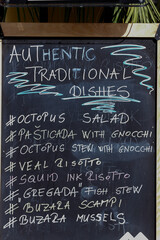 AUTHENTIC
TRADITIONAL
DISHES
#OCTOPUS SALAD
#PAŠTICADA WITH GNOCCHI
#OCTOPUS STEW WITH GNOCCHI
#VEAL RISOTTO
#SQUID INK RISOTTO
#"GREGADA" FISH STEW
#"BUZARA" SCAMPI
#BUZARA MUSSELS